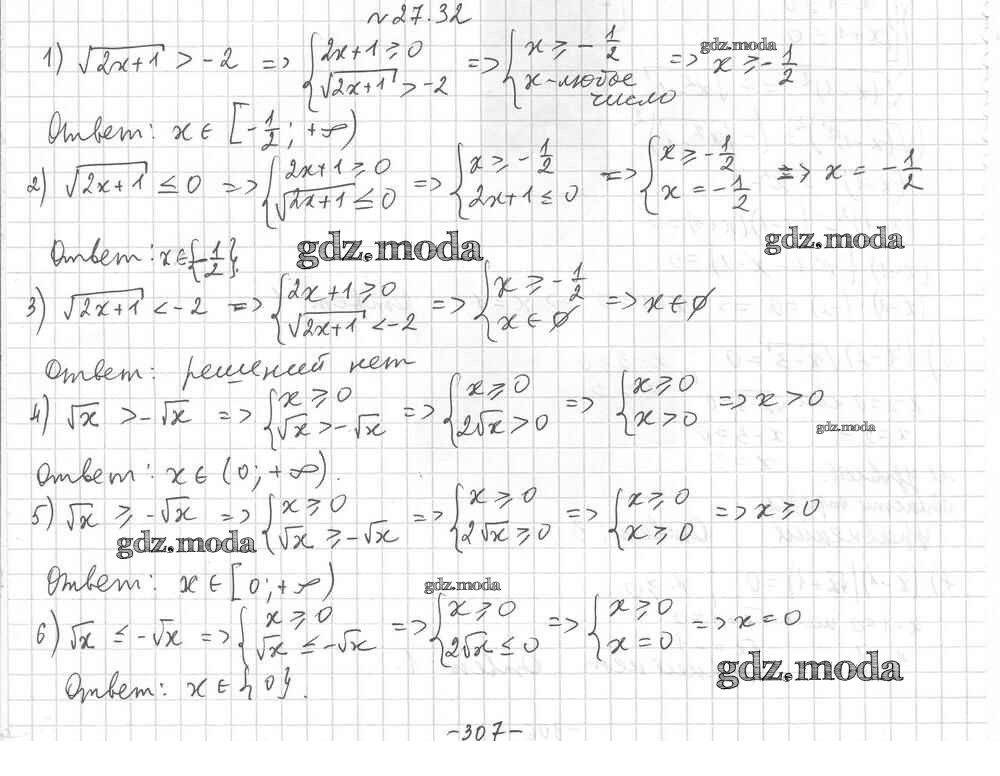 №27.32
1) √(2x+1) > -2 => { 2x+1 ⩾ 0; √(2x+1) > -2 => { x ⩾ -1/2; x - любое число => x ⩾ -1/2
gdz.moda
Ответ: x ∈ [-1/2; +∞)
2) √(2x+1) ≤ 0 => { 2x+1 ⩾ 0; √(2x+1) ≤ 0 => { x ⩾ -1/2; 2x+1 ≤ 0 => { x ⩾ -1/2; x = -1/2 => x = -1/2
Ответ: x ∈ {-1/2}.
gdz.moda
gdz.moda
3) √(2x+1) < -2 => { 2x+1 ⩾ 0; √(2x+1) < -2 => { x ⩾ -1/2; x ∈ ∅ => x ∈ ∅
Ответ: решений нет
4) √x > -√x => { x ⩾ 0; √x > -√x => { x ⩾ 0; 2√x > 0 => { x ⩾ 0; x > 0 => x > 0
gdz.moda
Ответ: x ∈ (0; +∞).
5) √x ⩾ -√x => { x ⩾ 0; √x ⩾ -√x => { x ⩾ 0; 2√x ⩾ 0 => { x ⩾ 0; x ⩾ 0 => x ⩾ 0
gdz.moda
Ответ: x ∈ [0; +∞)
gdz.moda
6) √x ≤ -√x => { x ⩾ 0; √x ≤ -√x => { x ⩾ 0; 2√x ≤ 0 => { x ⩾ 0; x = 0 => x = 0
gdz.moda
Ответ: x ∈ {0}.
-307-